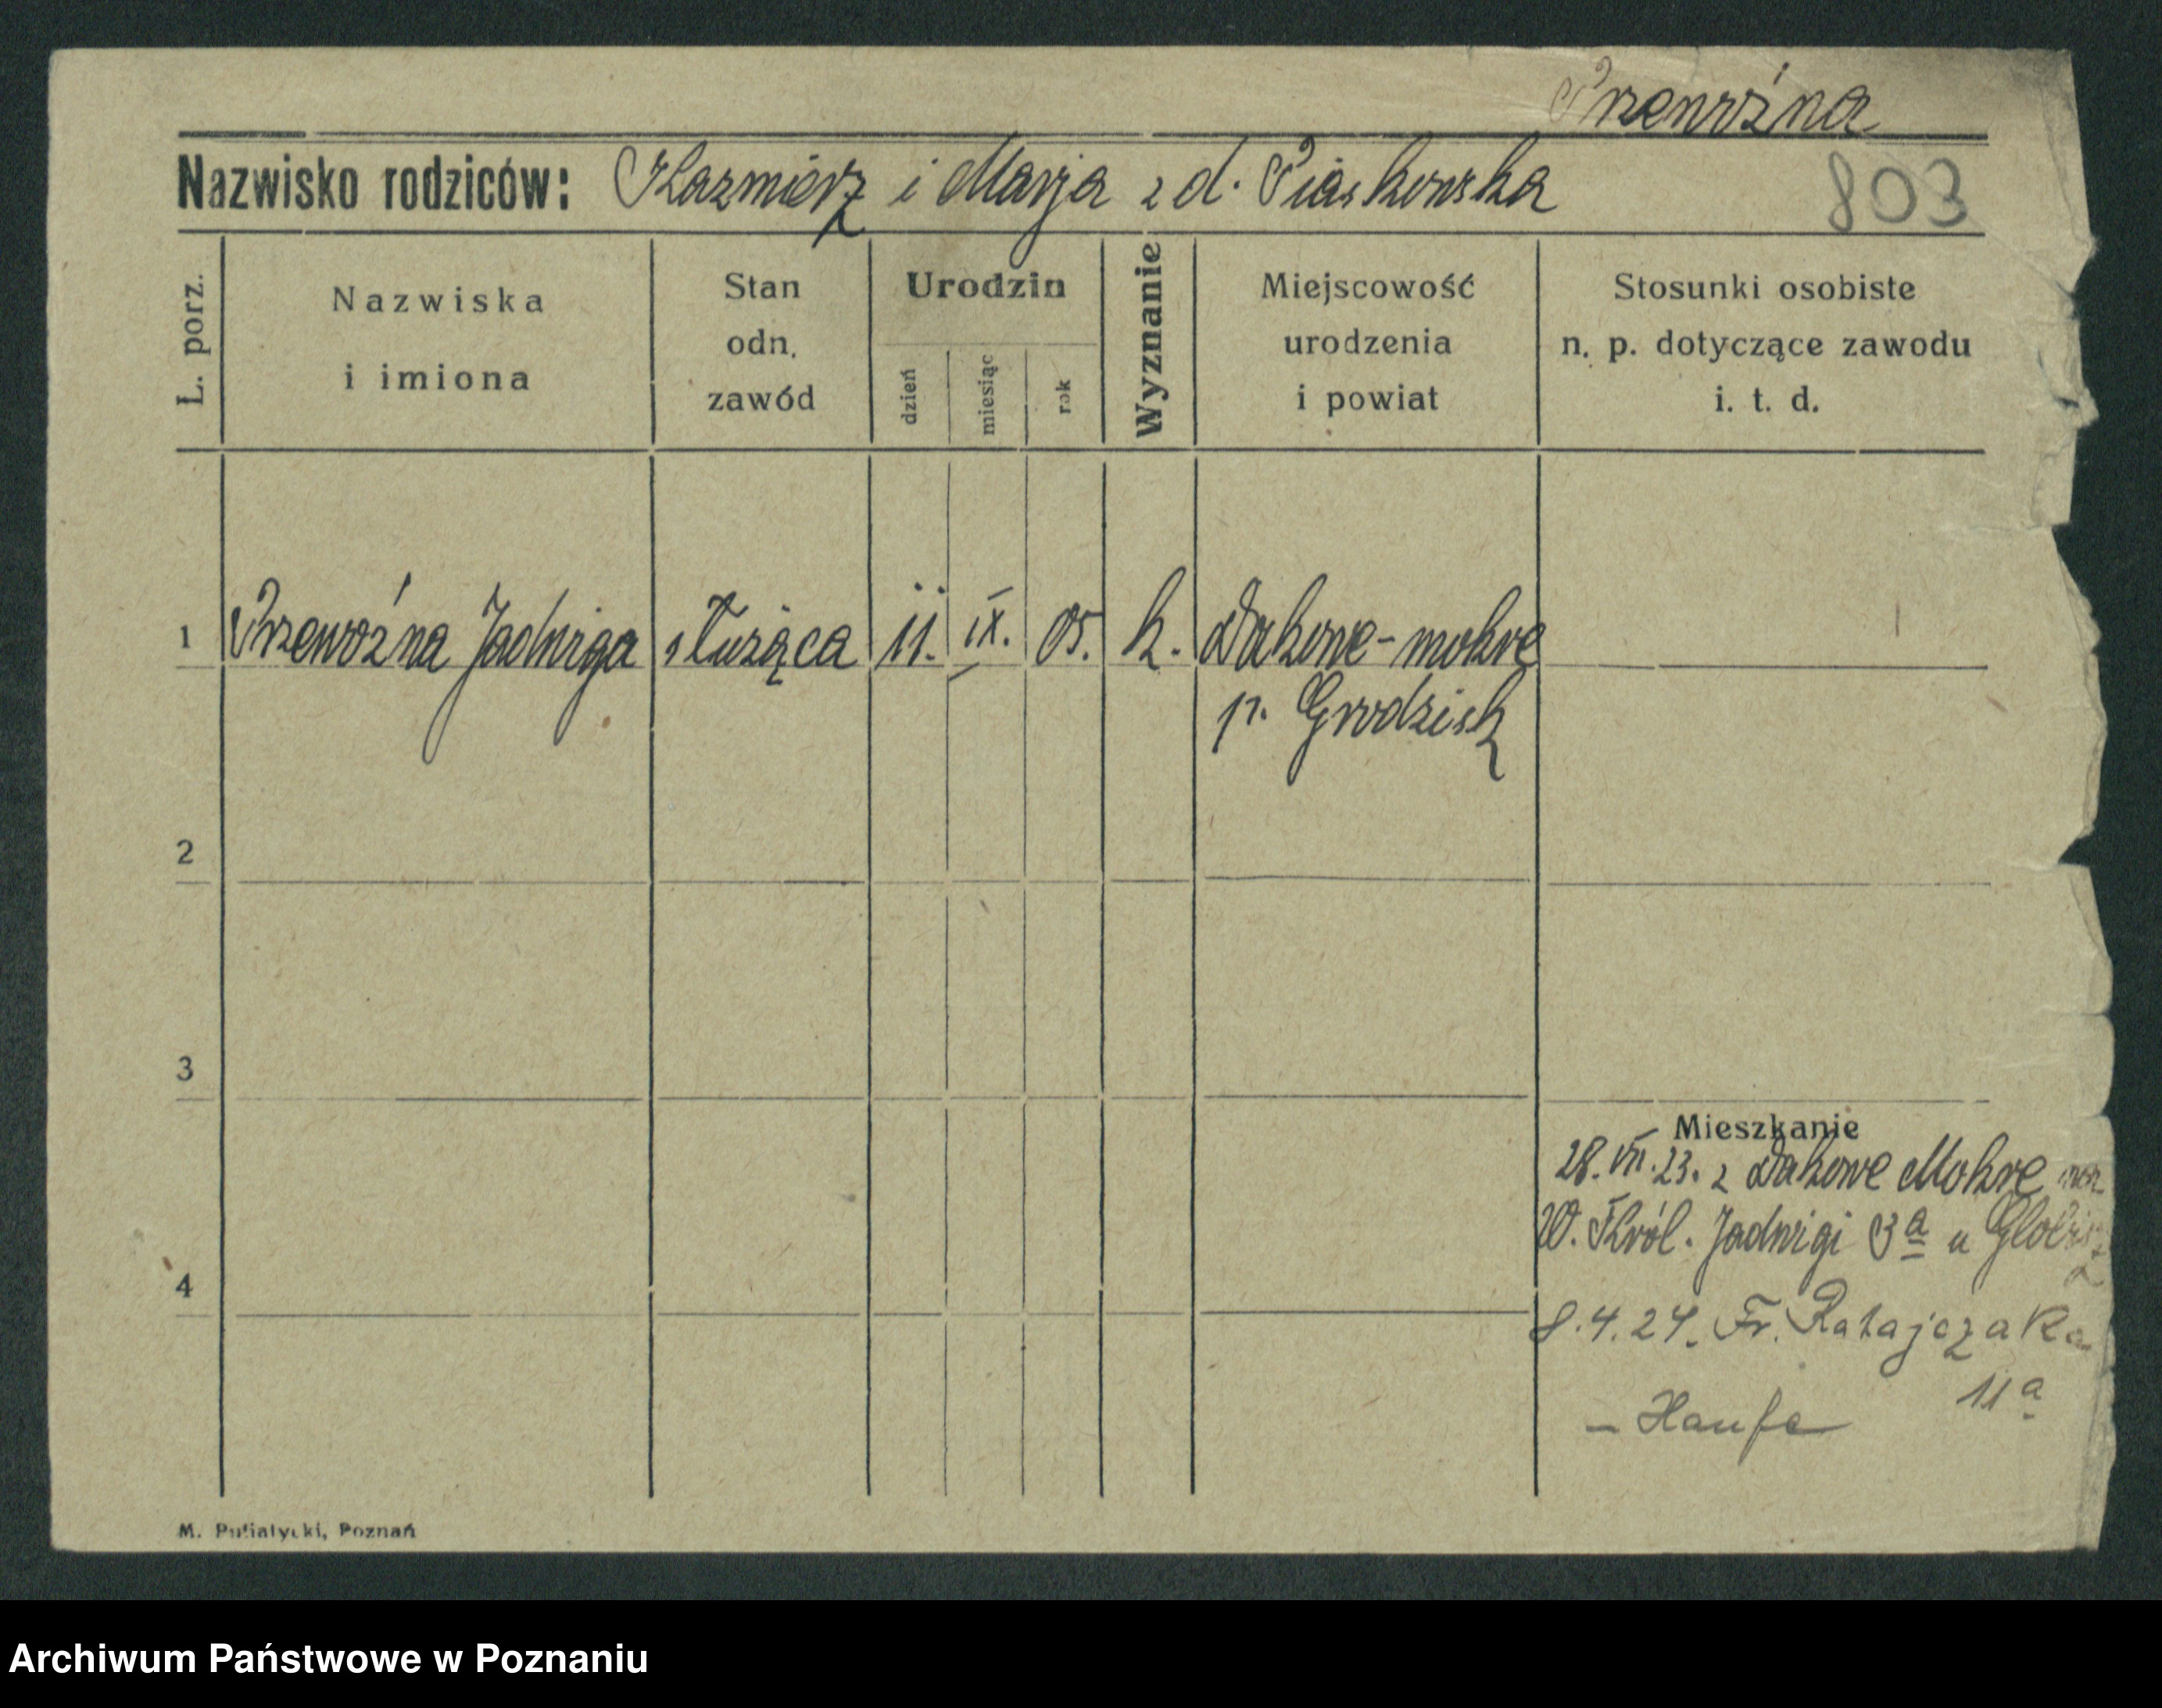 Przewoźna
Nazwisko rodziców: Kazmierz i Marja z d. Piaskowska
803
L. porz.
Nazwiska
i imiona
Stan
odn.
zawód
Urodzin
dzień
miesiąc
rok
Wyznanie
Miejscowość
urodzenia
i powiat
Stosunki osobiste
n. p. dotyczące zawodu
i. t. d.
1 Przewoźna Jadwiga służąca 11. IX. 05. k. Dakowe-mokre
p. Grodzisk
2
3
Mieszkanie
28. VII. 23. z Dakowe Mokre
W. Król. Jadwigi 3a u
4
8.4.24. Fr. Ratajczaka
11a
- Haufe
M. Putiatycki, Poznań
Archiwum Państwowe w Poznaniu